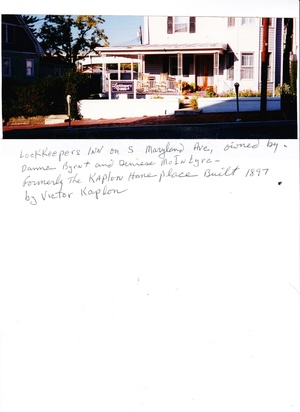 LockKeepers INN on S Maryland Ave, owned by -
Danne Byrnt and Deniese McIntyre -
Formerly The KAPlon Home place Built 1897
by Victor Kaplon